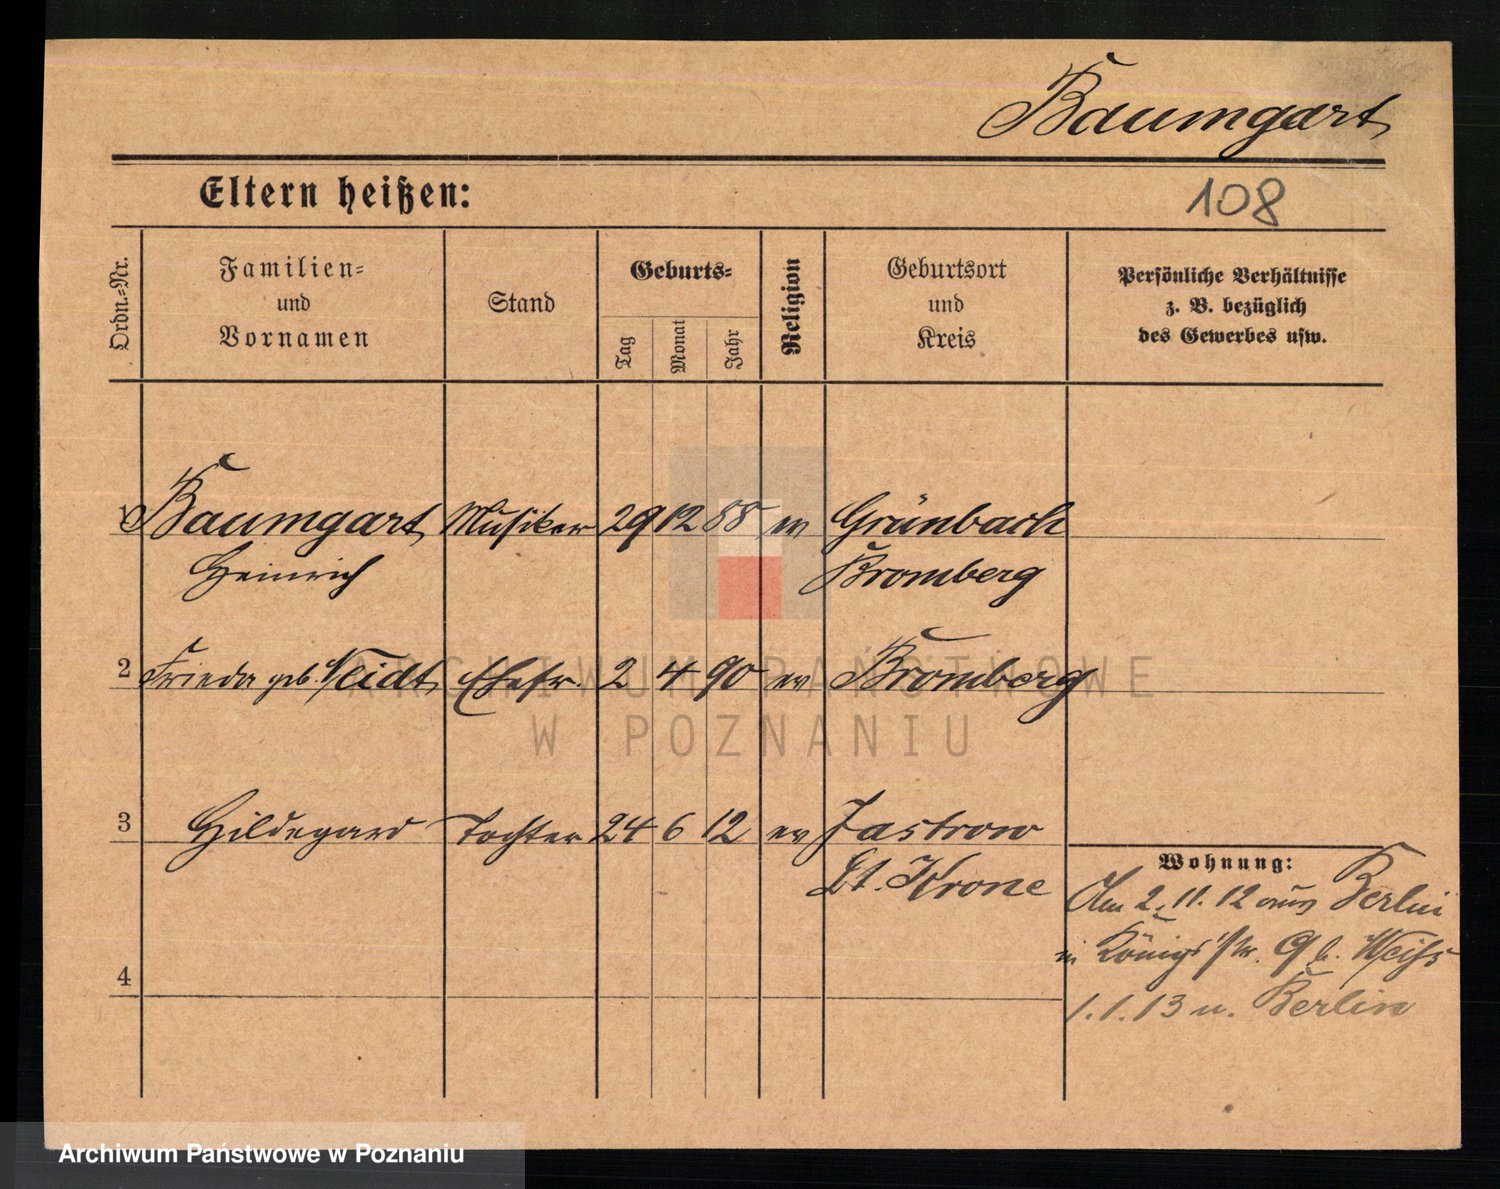 Baumgart
Eltern heißen:
108
Ordn.-Nr.
Familien-
und
Vornamen
Stand
Geburts-
Tag
Monat
Jahr
Religion
Geburtsort
und
Kreis
Persönliche Verhältnisse
z. B. bezüglich
des Gewerbes usw.
1 Baumgart Musiker 29 12 88 ev Grünbach
Heinrich Bromberg
2 Frieda geb. Neidt Ehefr. 2 4 90 ev Bromberg
3 Hildegard Tochter 24 6 12 ev Jastrow
Dt. Krone
Wohnung:
Am 2. 11. 12 aus Berlin
in Königsstr. 9 b. Weiss
4
1.1.13 n. Berlin
ARCHIWUM PAŃSTWOWE
W POZNANIU
Archiwum Państwowe w Poznaniu